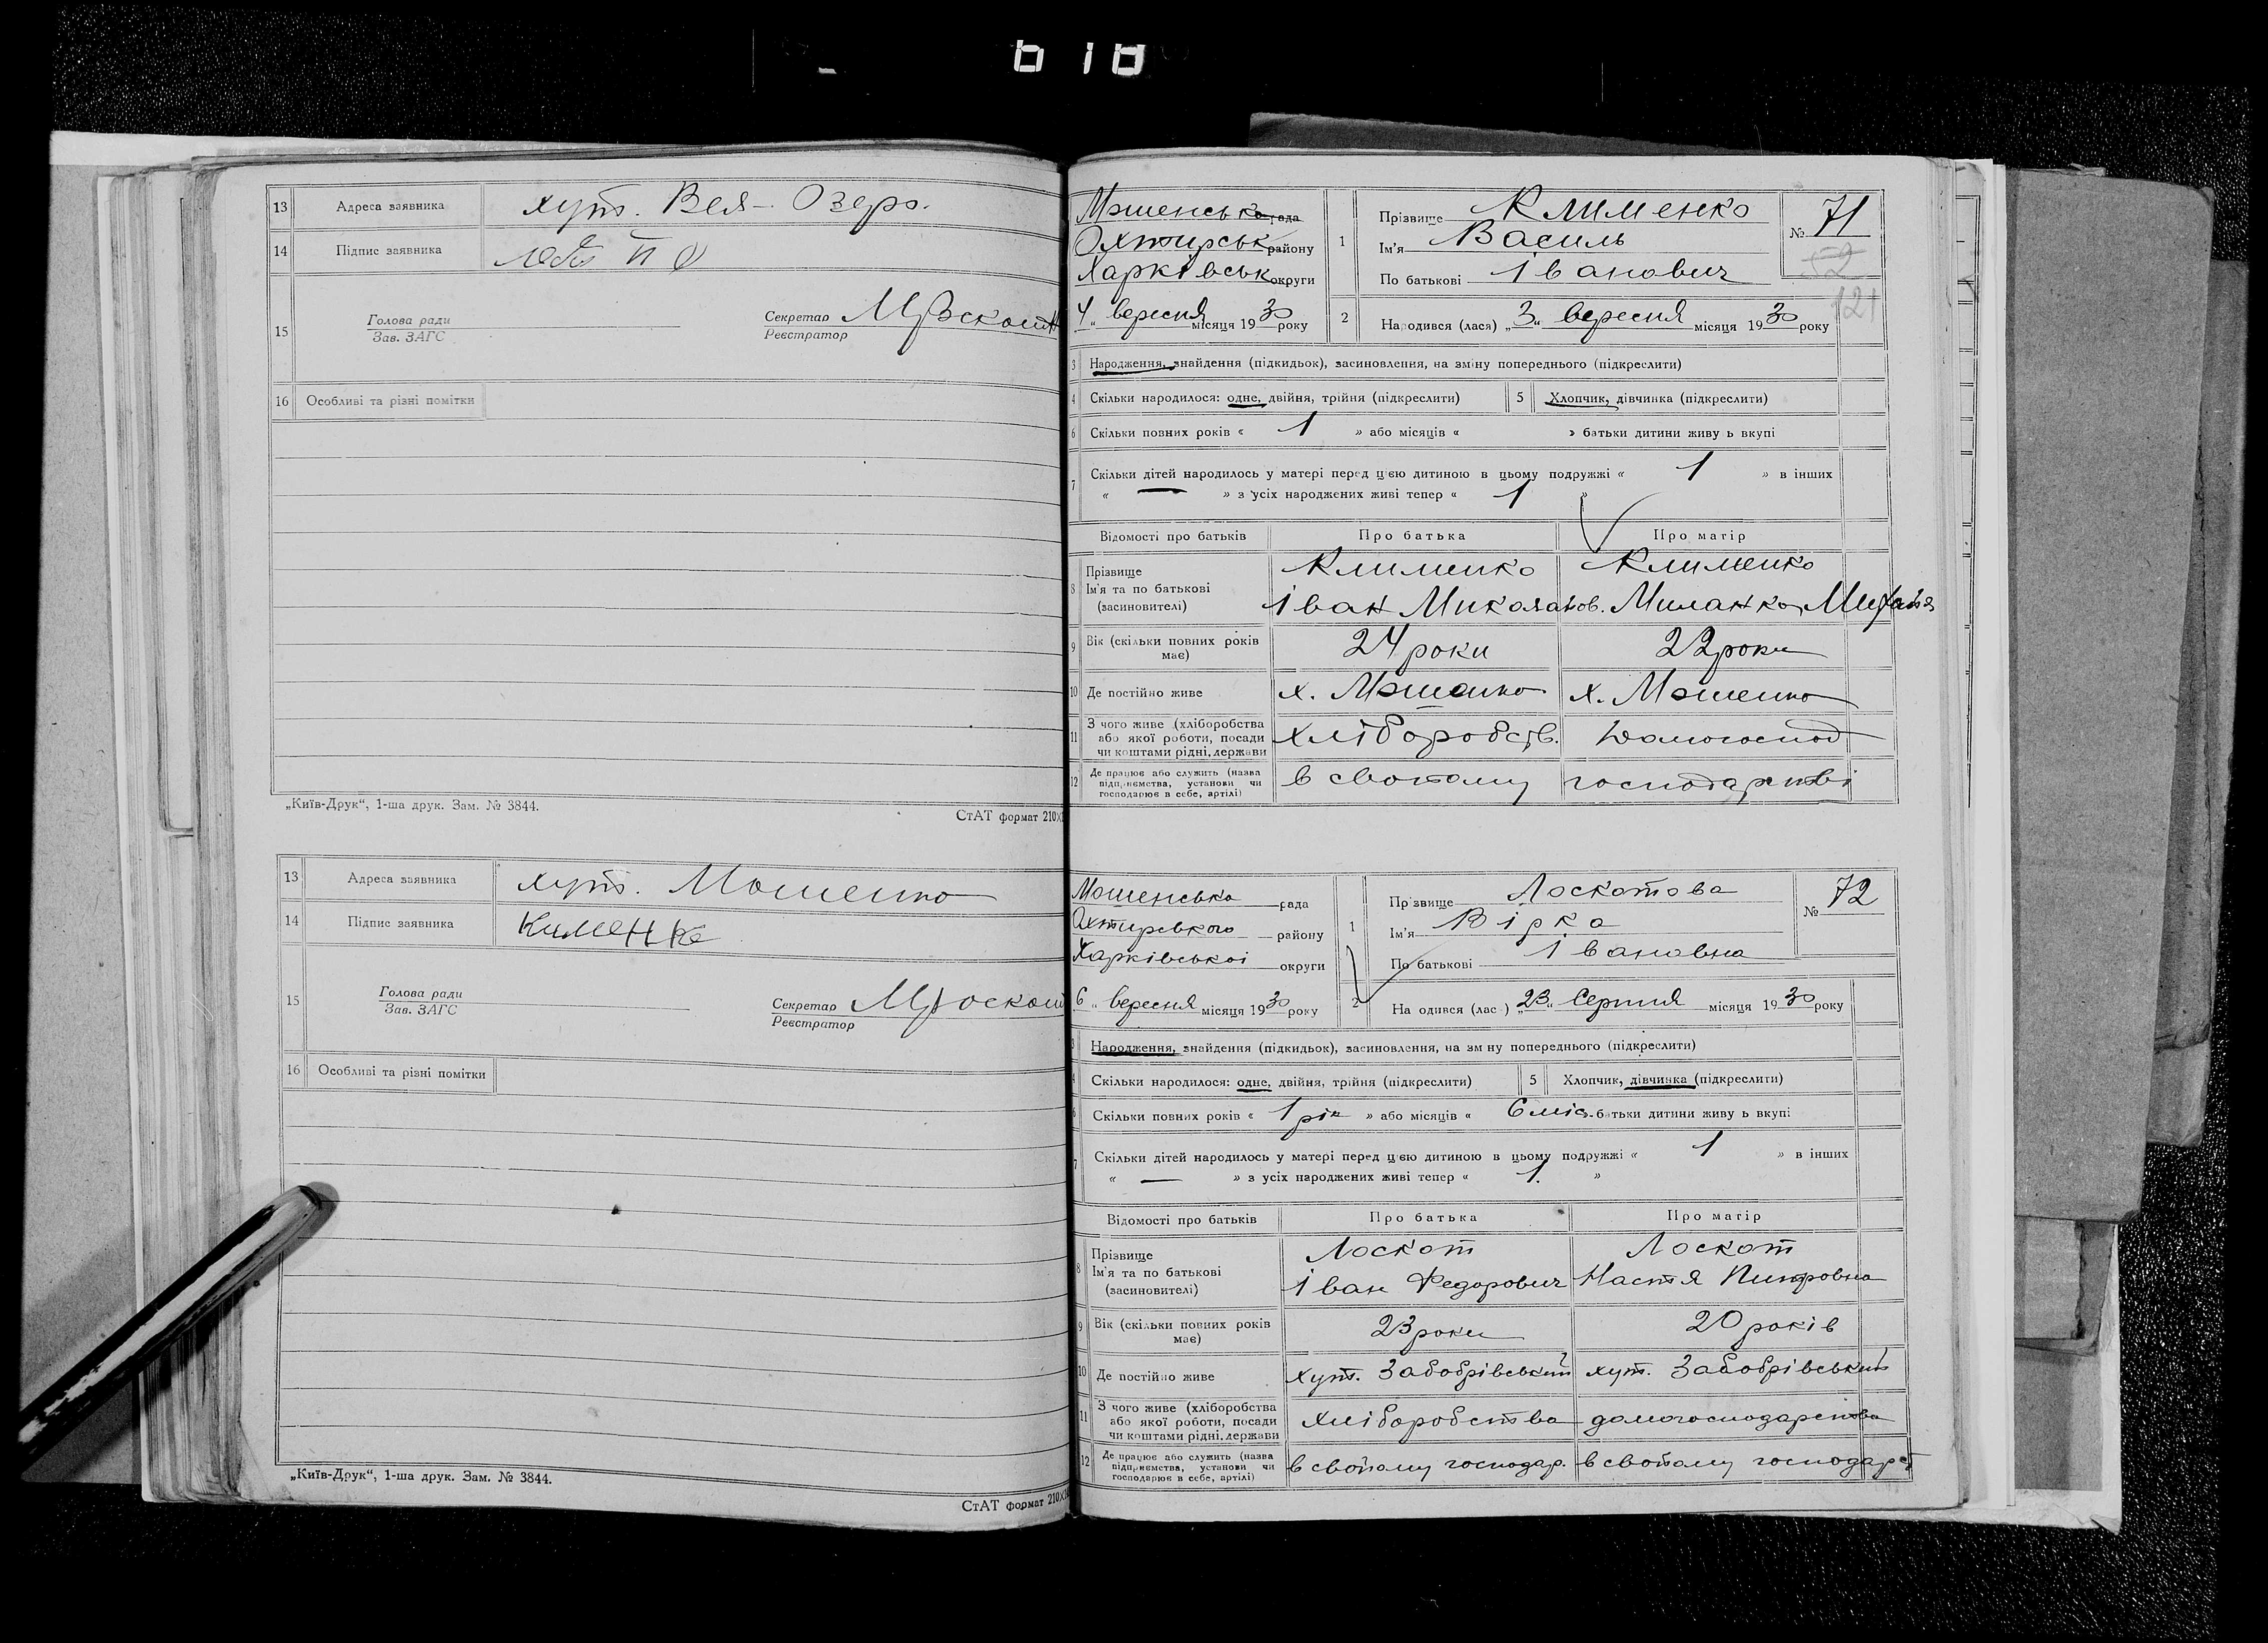 618
13 Адреса заявника хут. Вел-Озеро.
14 Підпис заявника
15 Голова ради Секретар
Зав. ЗАГС Реєстратор
16 Особливі та різні помітки
„Київ-Друк“, 1-ша друк. Зам. № 3844.
СтАТ формат 210×
13 Адреса заявника хут. Мошенко
14 Підпис заявника
15 Голова ради Секретар
Зав. ЗАГС Реєстратор
16 Особливі та різні помітки
„Київ-Друк“, 1-ша друк. Зам. № 3844.
СтАТ формат 210×
Мошенська рада
Охтирськ району
Харківськ округи
4 „ вересня місяця 1930 року
1 Прізвище Клименко
Ім'я Василь
По батькові Іванович
№ 71
52
121
2 Народився (лася) „3“ вересня місяця 1930 року
3 Народження, знайдення (підкидьок), засиновлення, на зміну попереднього (підкреслити)
4 Скільки народилося: одне, двійня, трійня (підкреслити) 5 Хлопчик, дівчинка (підкреслити)
6 Скільки повних років « 1 » або місяців « » батьки дитини живу ь вкупі
7 Скільки дітей народилось у матері перед цією дитиною в цьому подружжі « 1 » в інших
« — » з усіх народжених живі тепер « 1 »
Відомості про батьків Про батька Про матір
8 Прізвище Клименко Клименко
Ім'я та по батькові Іван Миколайов. Миланка
(засиновителі)
9 Вік (скільки повних років має) 24 роки 22 роки
10 Де постійно живе х. Мошенко х. Мошенко
11 З чого живе (хліборобства або якої роботи, посади чи коштами рідні, держави хліборобств. домогоспод
12 Де працює або служить (назва підприємства, установи чи господарює в себе, артілі) в свойому господарстві
Мошенська рада
Охтирського району
Харківської округи
6 „ вересня місяця 1930 року
1 Пр звище Лоскотова
Ім'я Вірка
По батькові Івановна
№ 72
2 На одився (лас ) „23“ Серпня місяця 1930 року
3 Народження, знайдення (підкидьок), засиновлення, на зм ну попереднього (підкреслити)
4 Скільки народилося: одне, двійня, трійня (підкреслити) 5 Хлопчик, дівчинка (підкреслити)
6 Скільки повних років « 1 рік » або місяців « 6 міс. батьки дитини живу ь вкупі
7 Скільки дітей народилось у матері перед цією дитиною в цьому подружжі « 1 » в інших
« — » з усіх народжених живі тепер « 1. »
Відомості про батьків Про батька Про матір
8 Прізвище Лоскот Лоскот
Ім'я та по батькові Іван Федорович Настя Питровна
(засиновителі)
9 Вік (скільки повних років має) 23 роки 20 років
10 Де постійно живе хут. Забобрівський хут. Забобрівський
11 З чого живе (хліборобства або якої роботи, посади чи коштами рідні, держави хліборобства домогосподарства
12 Де працює або служить (назва підприємства, установи чи господарює в себе, артілі) в свойому господар. в свойому господарс